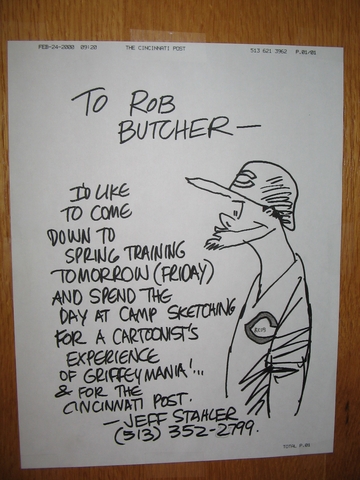 FEB-24-2000 09:20 THE CINCINNATI POST 513 621 3962 P.01/01
TO ROB
BUTCHER—
I'D LIKE
TO COME
DOWN TO
SPRING TRAINING
TOMORROW (FRIDAY)
AND SPEND THE
DAY AT CAMP SKETCHING
FOR A CARTOONIST'S
EXPERIENCE
OF GRIFFEYMANIA!...
& FOR THE
CINCINNATI POST.
—JEFF STAHLER
(513) 352-2799.
C
C
REDS
TOTAL P.01